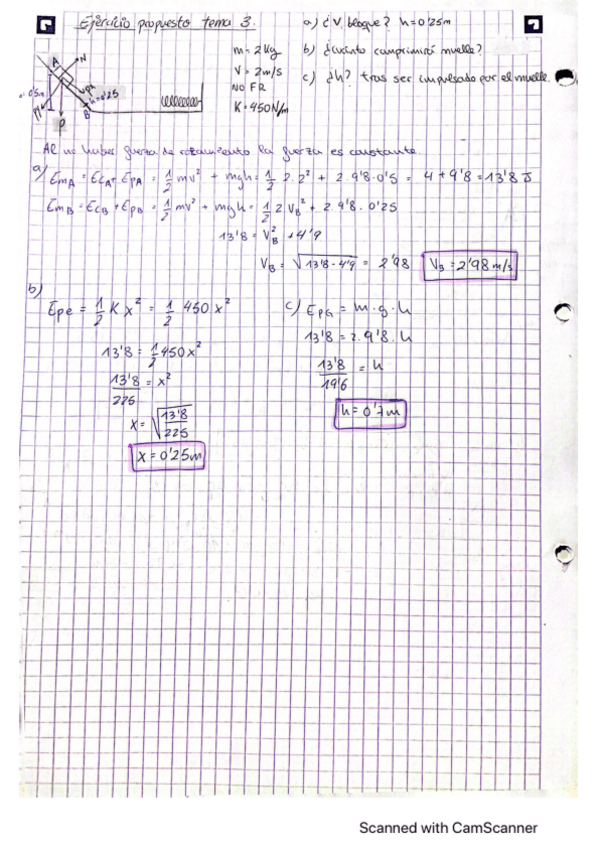 Ejercicio propuesto tema 3.
a) ¿V. bloque? h=0'25m
m=2Kg
b) ¿Cuánto comprimirá muelle?
V=2m/s
c) ¿h? tras ser impulsado por el muelle.
NO FR
K=450N/m
A
N
h=0'25
B
P
Al no haber fuerza de rozamiento la fuerza es constante.
a) EmA = EcA + EpA = 1/2 mv² + mgh = 1/2 2·2² + 2·9'8·0'5 = 4 + 9'8 = 13'8 J
EmB = EcB + EpB = 1/2 mv² + mgh = 1/2 2 VB² + 2·9'8·0'25
13'8 = VB² + 4'9
VB = √13'8-4'9 = 2'98
VB = 2'98 m/s
b)
Epe = 1/2 K x² = 1/2 450 x²
13'8 = 1/2 450x²
13'8/225 = x²
x = √13'8/225
x = 0'25m
c) EpG = m·g·h
13'8 = 2·9'8·h
13'8/19'6 = h
h = 0'7m
Scanned with CamScanner